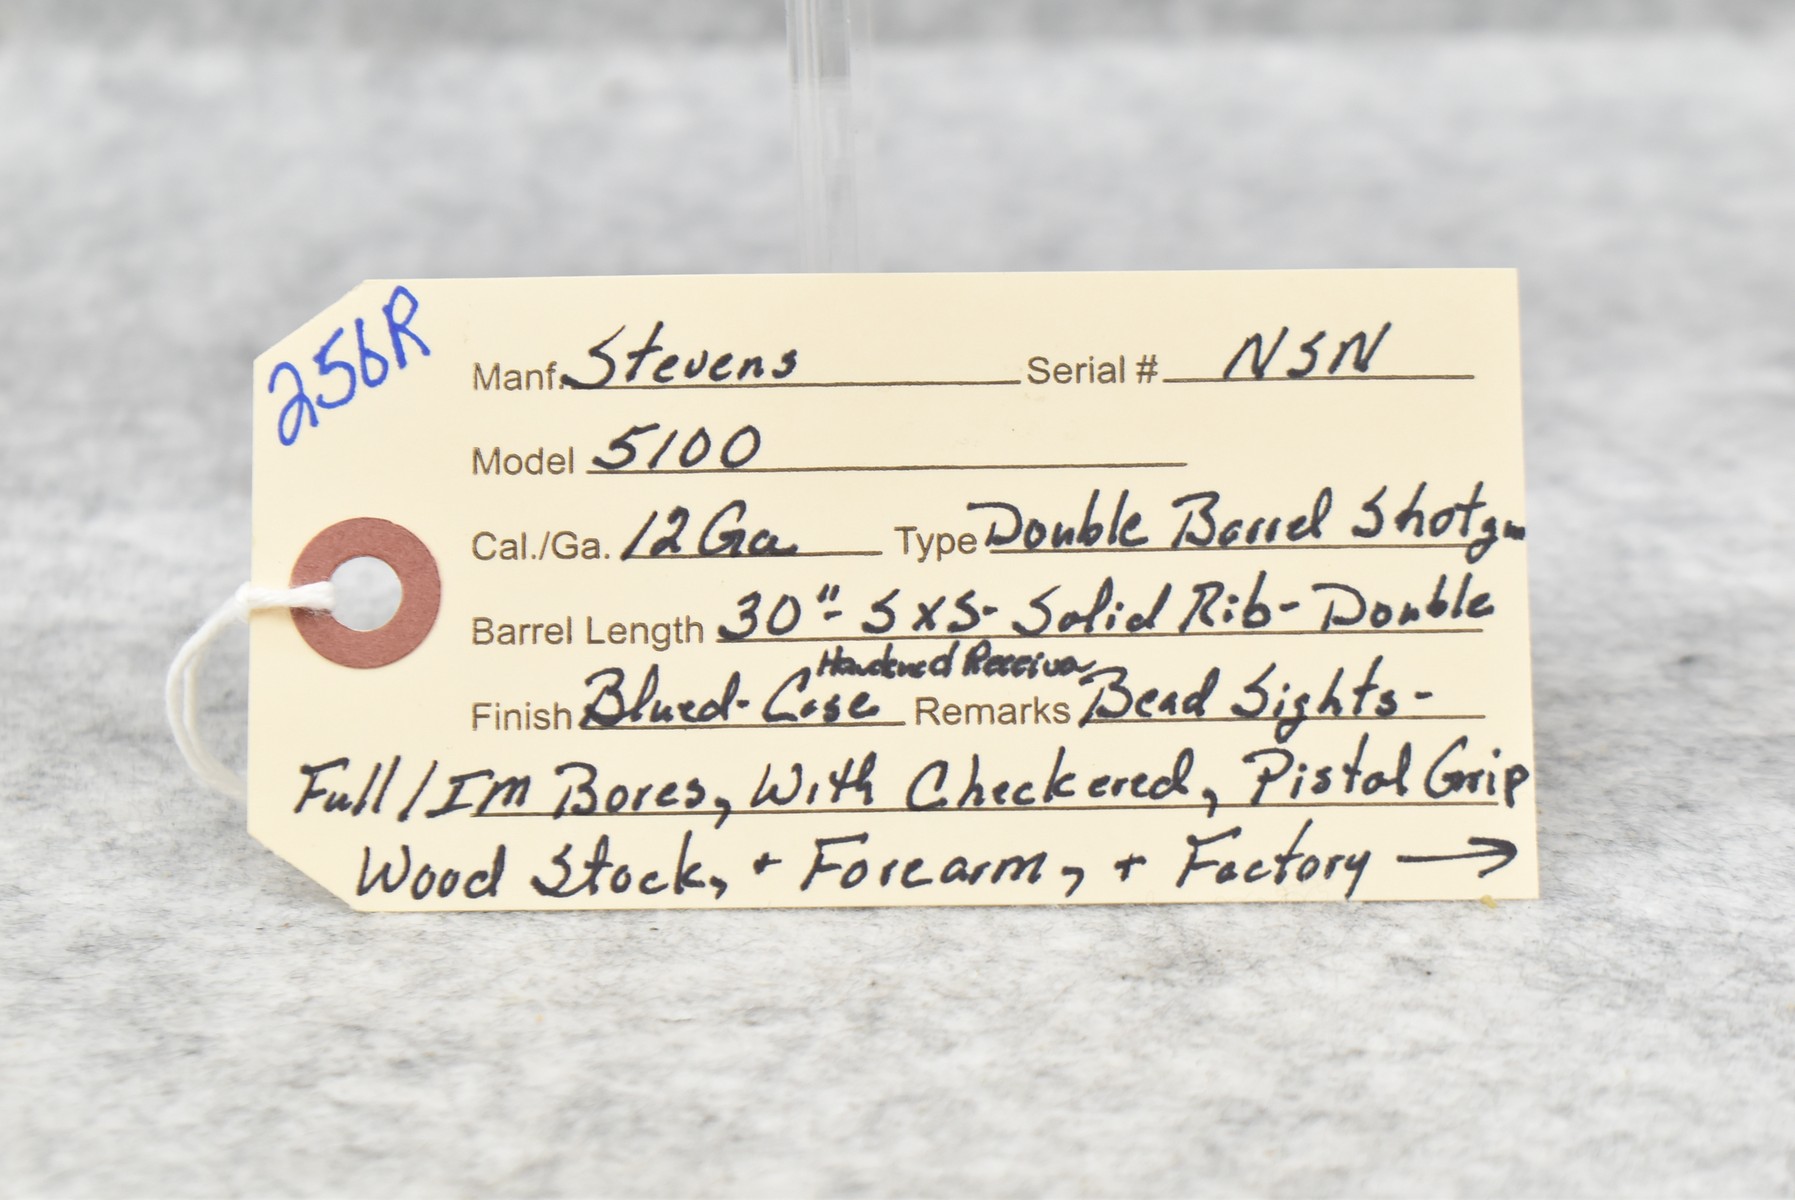 256R
Manf. Stevens Serial # NSN
Model 5100
Cal./Ga. 12 Ga Type Double Barrel Shotgun
Barrel Length 30"- SXS- Solid Rib- Double
Hardened Receiver
Finish Blued- Case Remarks Bead Sights-
Full/IM Bores, With Checkered, Pistol Grip
Wood Stock, + Forearm, + Factory →